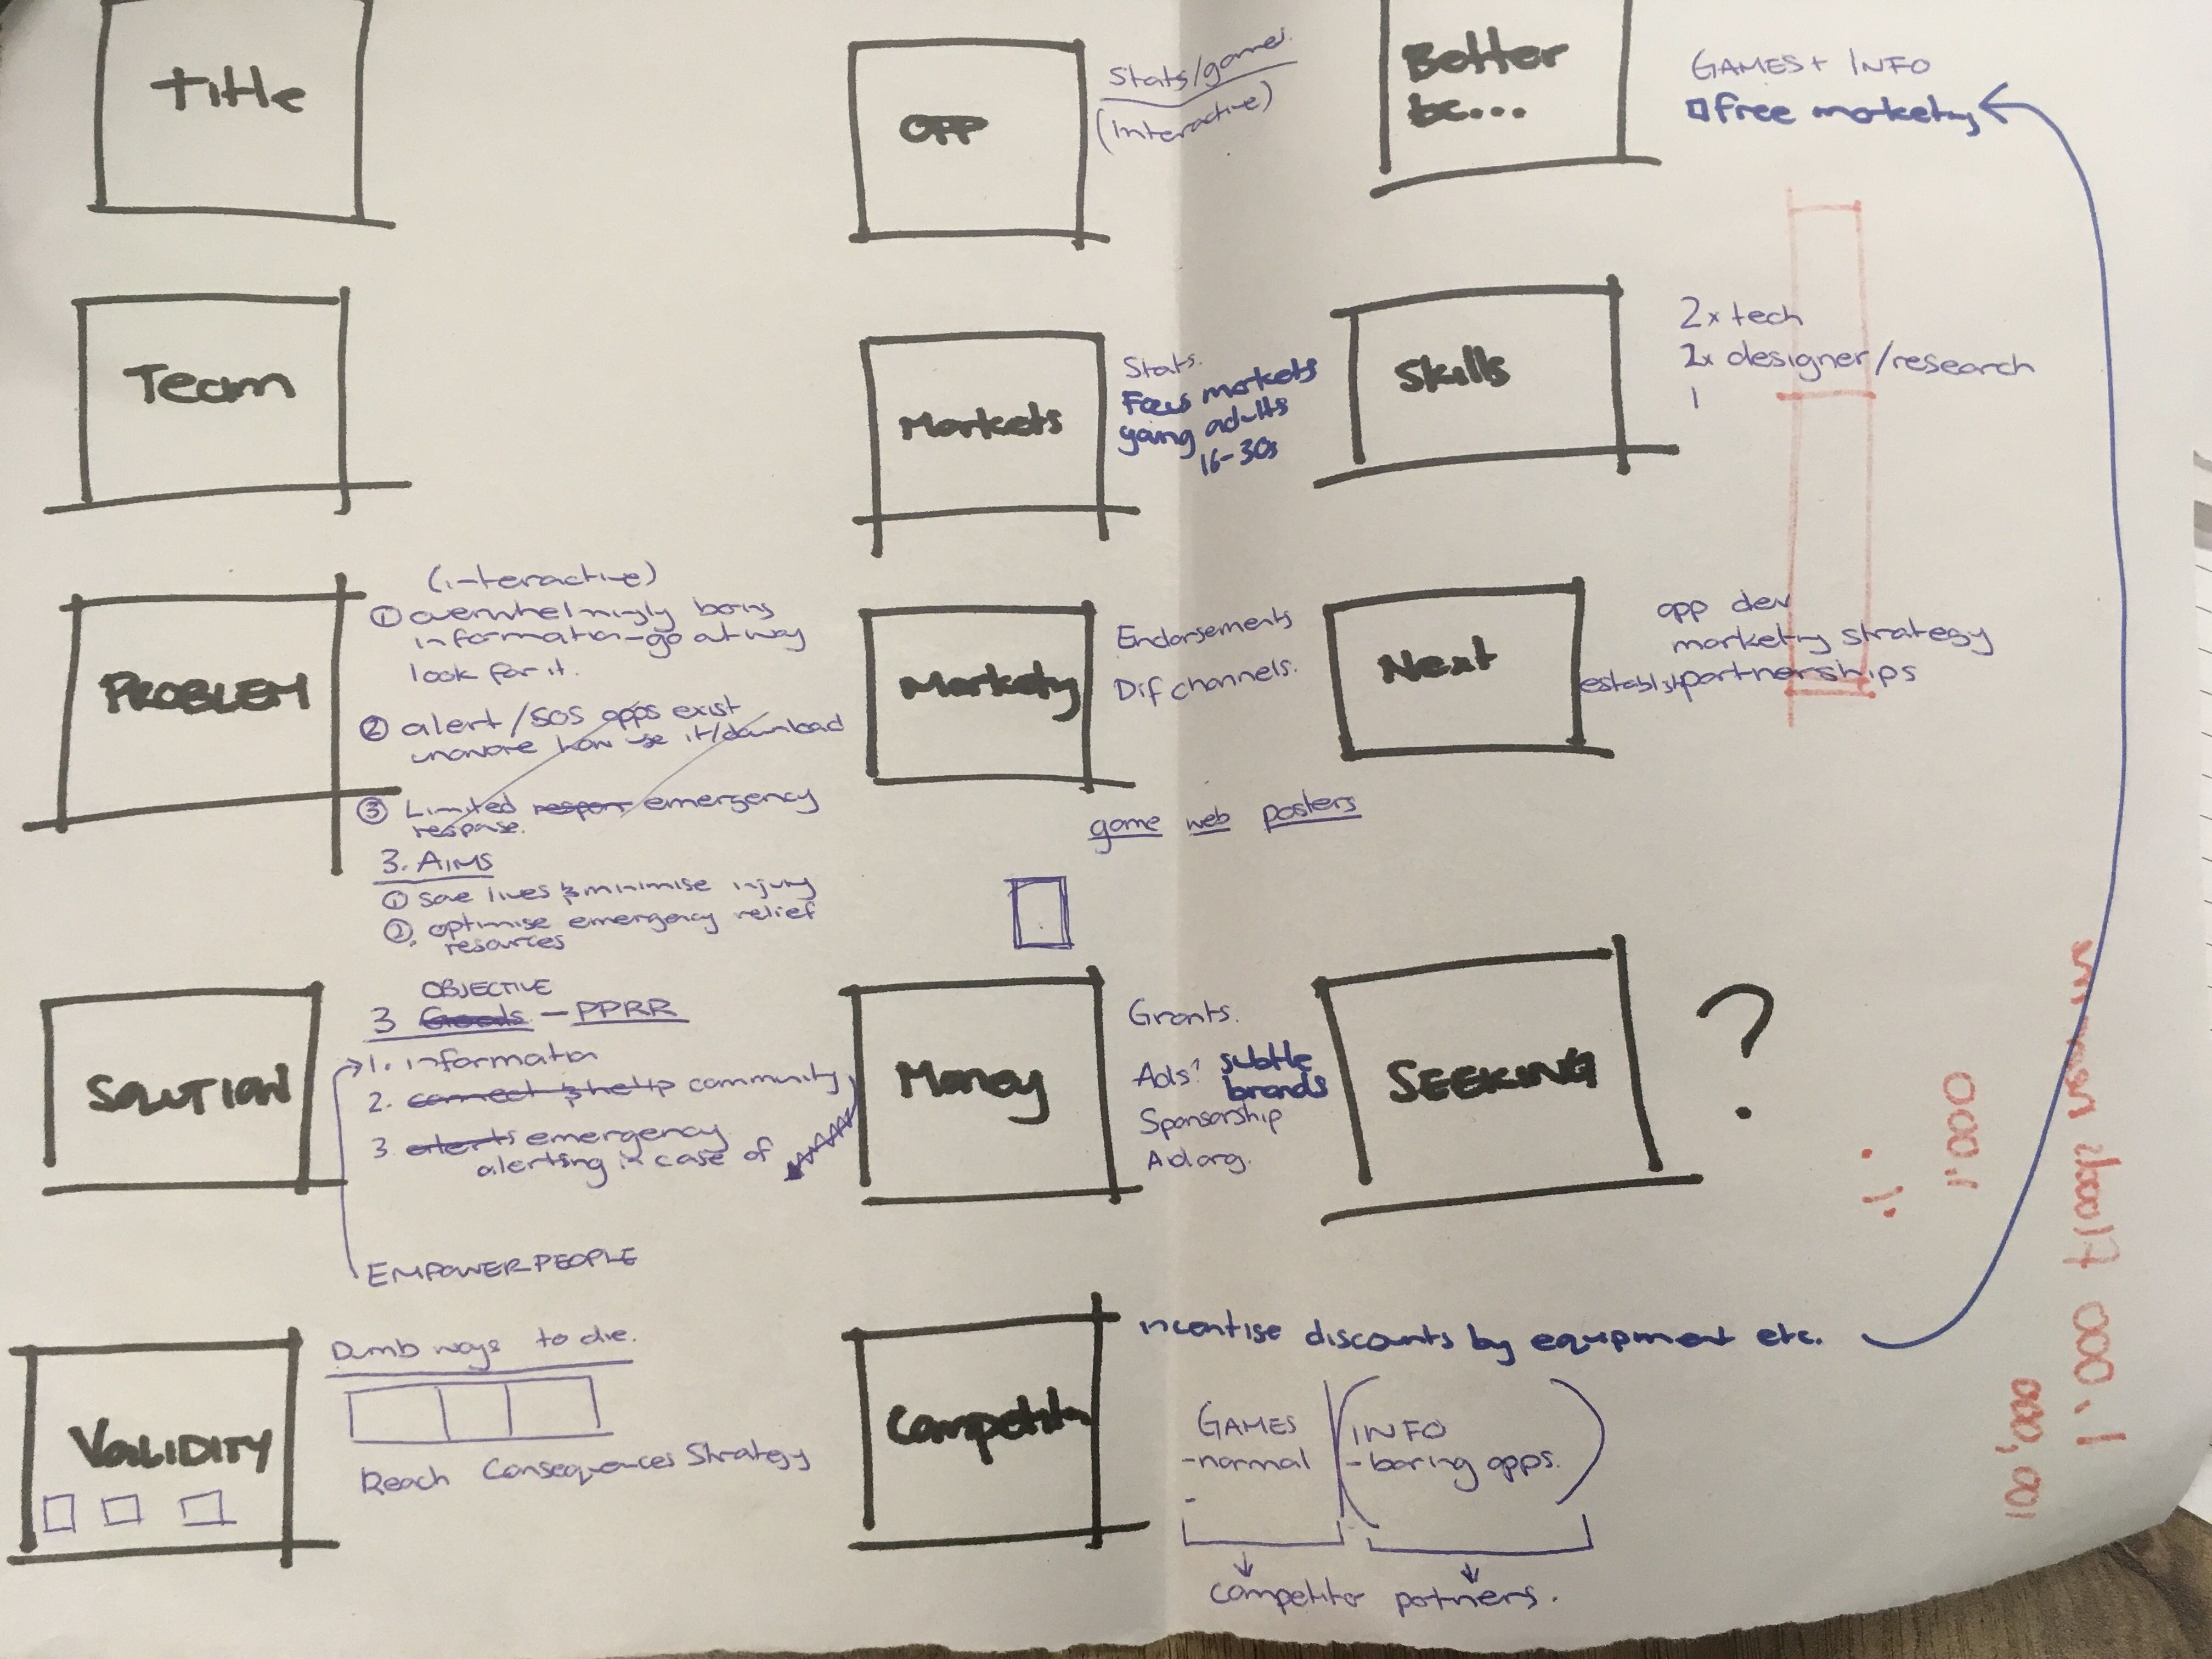 Title
Team
PROBLEM
(interactive)
① overwhelmingly boring
information - go out way
look for it.
② alert/SOS apps exist
unaware how use it/download
③ Limited respon emergency
respose.
3. AIMS
① save lives & minimise injury
② optimise emergency relief
resources
SOLUTION
OBJECTIVE
3 Goals - PPRR
1. information
2. connect & help community
3 alerts emergency
alerting in case of
EMPOWER PEOPLE
VALIDITY
Dumb ways to die.
Reach Consequences Strategy
OPP
Stats/games.
(Interactive)
Markets
Stats.
Focus markets
young adults
16-30s
Markety
Endorsements
Dif channels.
game web posters
Money
Grants.
Ads? subtle
brands
Sponsorship
Aid org.
Competitn
incentise discounts by equipment etc.
GAMES
-normal
-
INFO
-boring apps.
competitor partners.
Better
bc...
GAMES + INFO
free markety
Skills
2x tech
2x designer/research
1
Next
app dev
markety strategy
establish partnerships
SEEKING
?
1,000
1.000
100,000